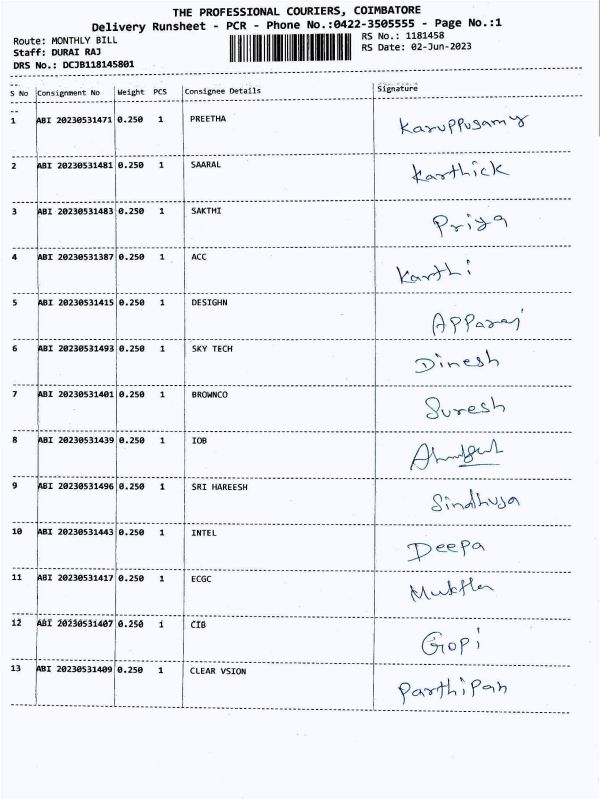 THE PROFESSIONAL COURIERS, COIMBATORE
Delivery Runsheet - PCR - Phone No.:0422-3505555 - Page No.:1
Route: MONTHLY BILL RS No.: 1181458
Staff: DURAI RAJ RS Date: 02-Jun-2023
DRS No.: DCJB118145801
S No Consignment No Weight PCS Consignee Details Signature
1 ABI 20230531471 0.250 1 PREETHA Karuppusamy
2 ABI 20230531481 0.250 1 SAARAL Karthick
3 ABI 20230531483 0.250 1 SAKTHI Priya
4 ABI 20230531387 0.250 1 ACC Karthi
5 ABI 20230531415 0.250 1 DESIGHN APParaj
6 ABI 20230531493 0.250 1 SKY TECH Dinesh
7 ABI 20230531401 0.250 1 BROWNCO Suresh
8 ABI 20230531439 0.250 1 IOB
9 ABI 20230531496 0.250 1 SRI HAREESH Sindhuja
10 ABI 20230531443 0.250 1 INTEL Deepa
11 ABI 20230531417 0.250 1 ECGC
12 ABI 20230531407 0.250 1 CIB Gopi
13 ABI 20230531409 0.250 1 CLEAR VSION ParthiPan